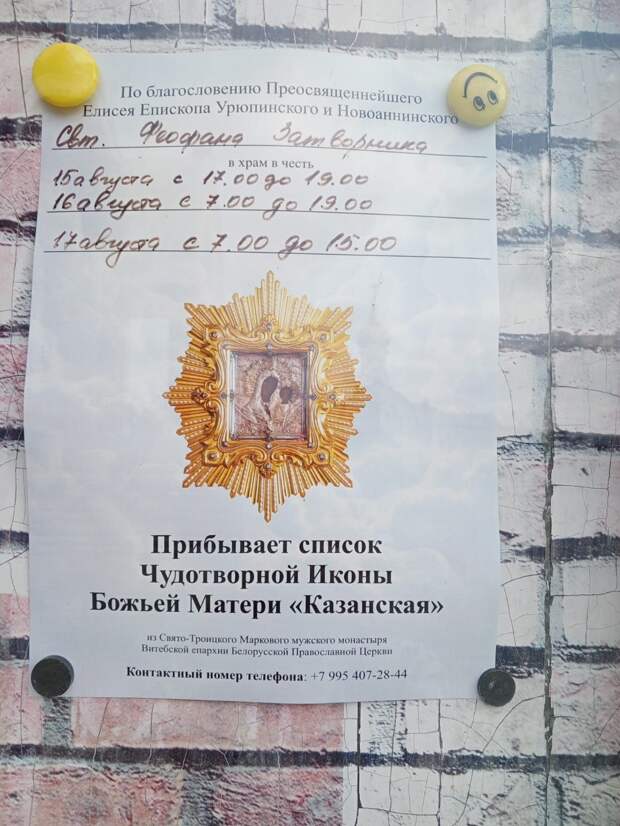 По благословению Преосвященнейшего
Елисея Епископа Урюпинского и Новоаннинского
Свт. Феофана Затворника
в храм в честь
15 августа с 17.00 до 19.00
16 августа с 7.00 до 19.00
17 августа с 7.00 до 15.00
Прибывает список
Чудотворной Иконы
Божьей Матери «Казанская»
из Свято-Троицкого Маркового мужского монастыря
Витебской епархии Белорусской Православной Церкви
Контактный номер телефона: +7 995 407-28-44